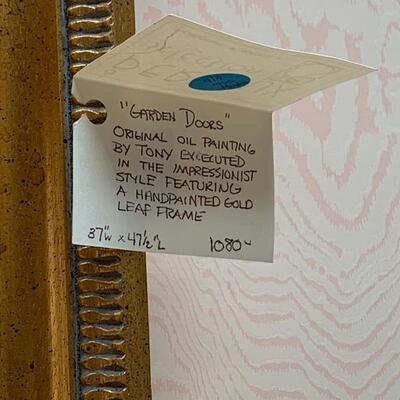 "GARDEN DOORS"
ORIGINAL OIL PAINTING
BY TONY EXCECUTED
IN THE IMPRESSIONIST
STYLE FEATURING
A HANDPAINTED GOLD
LEAF FRAME
37"W x 47½"L 1080-